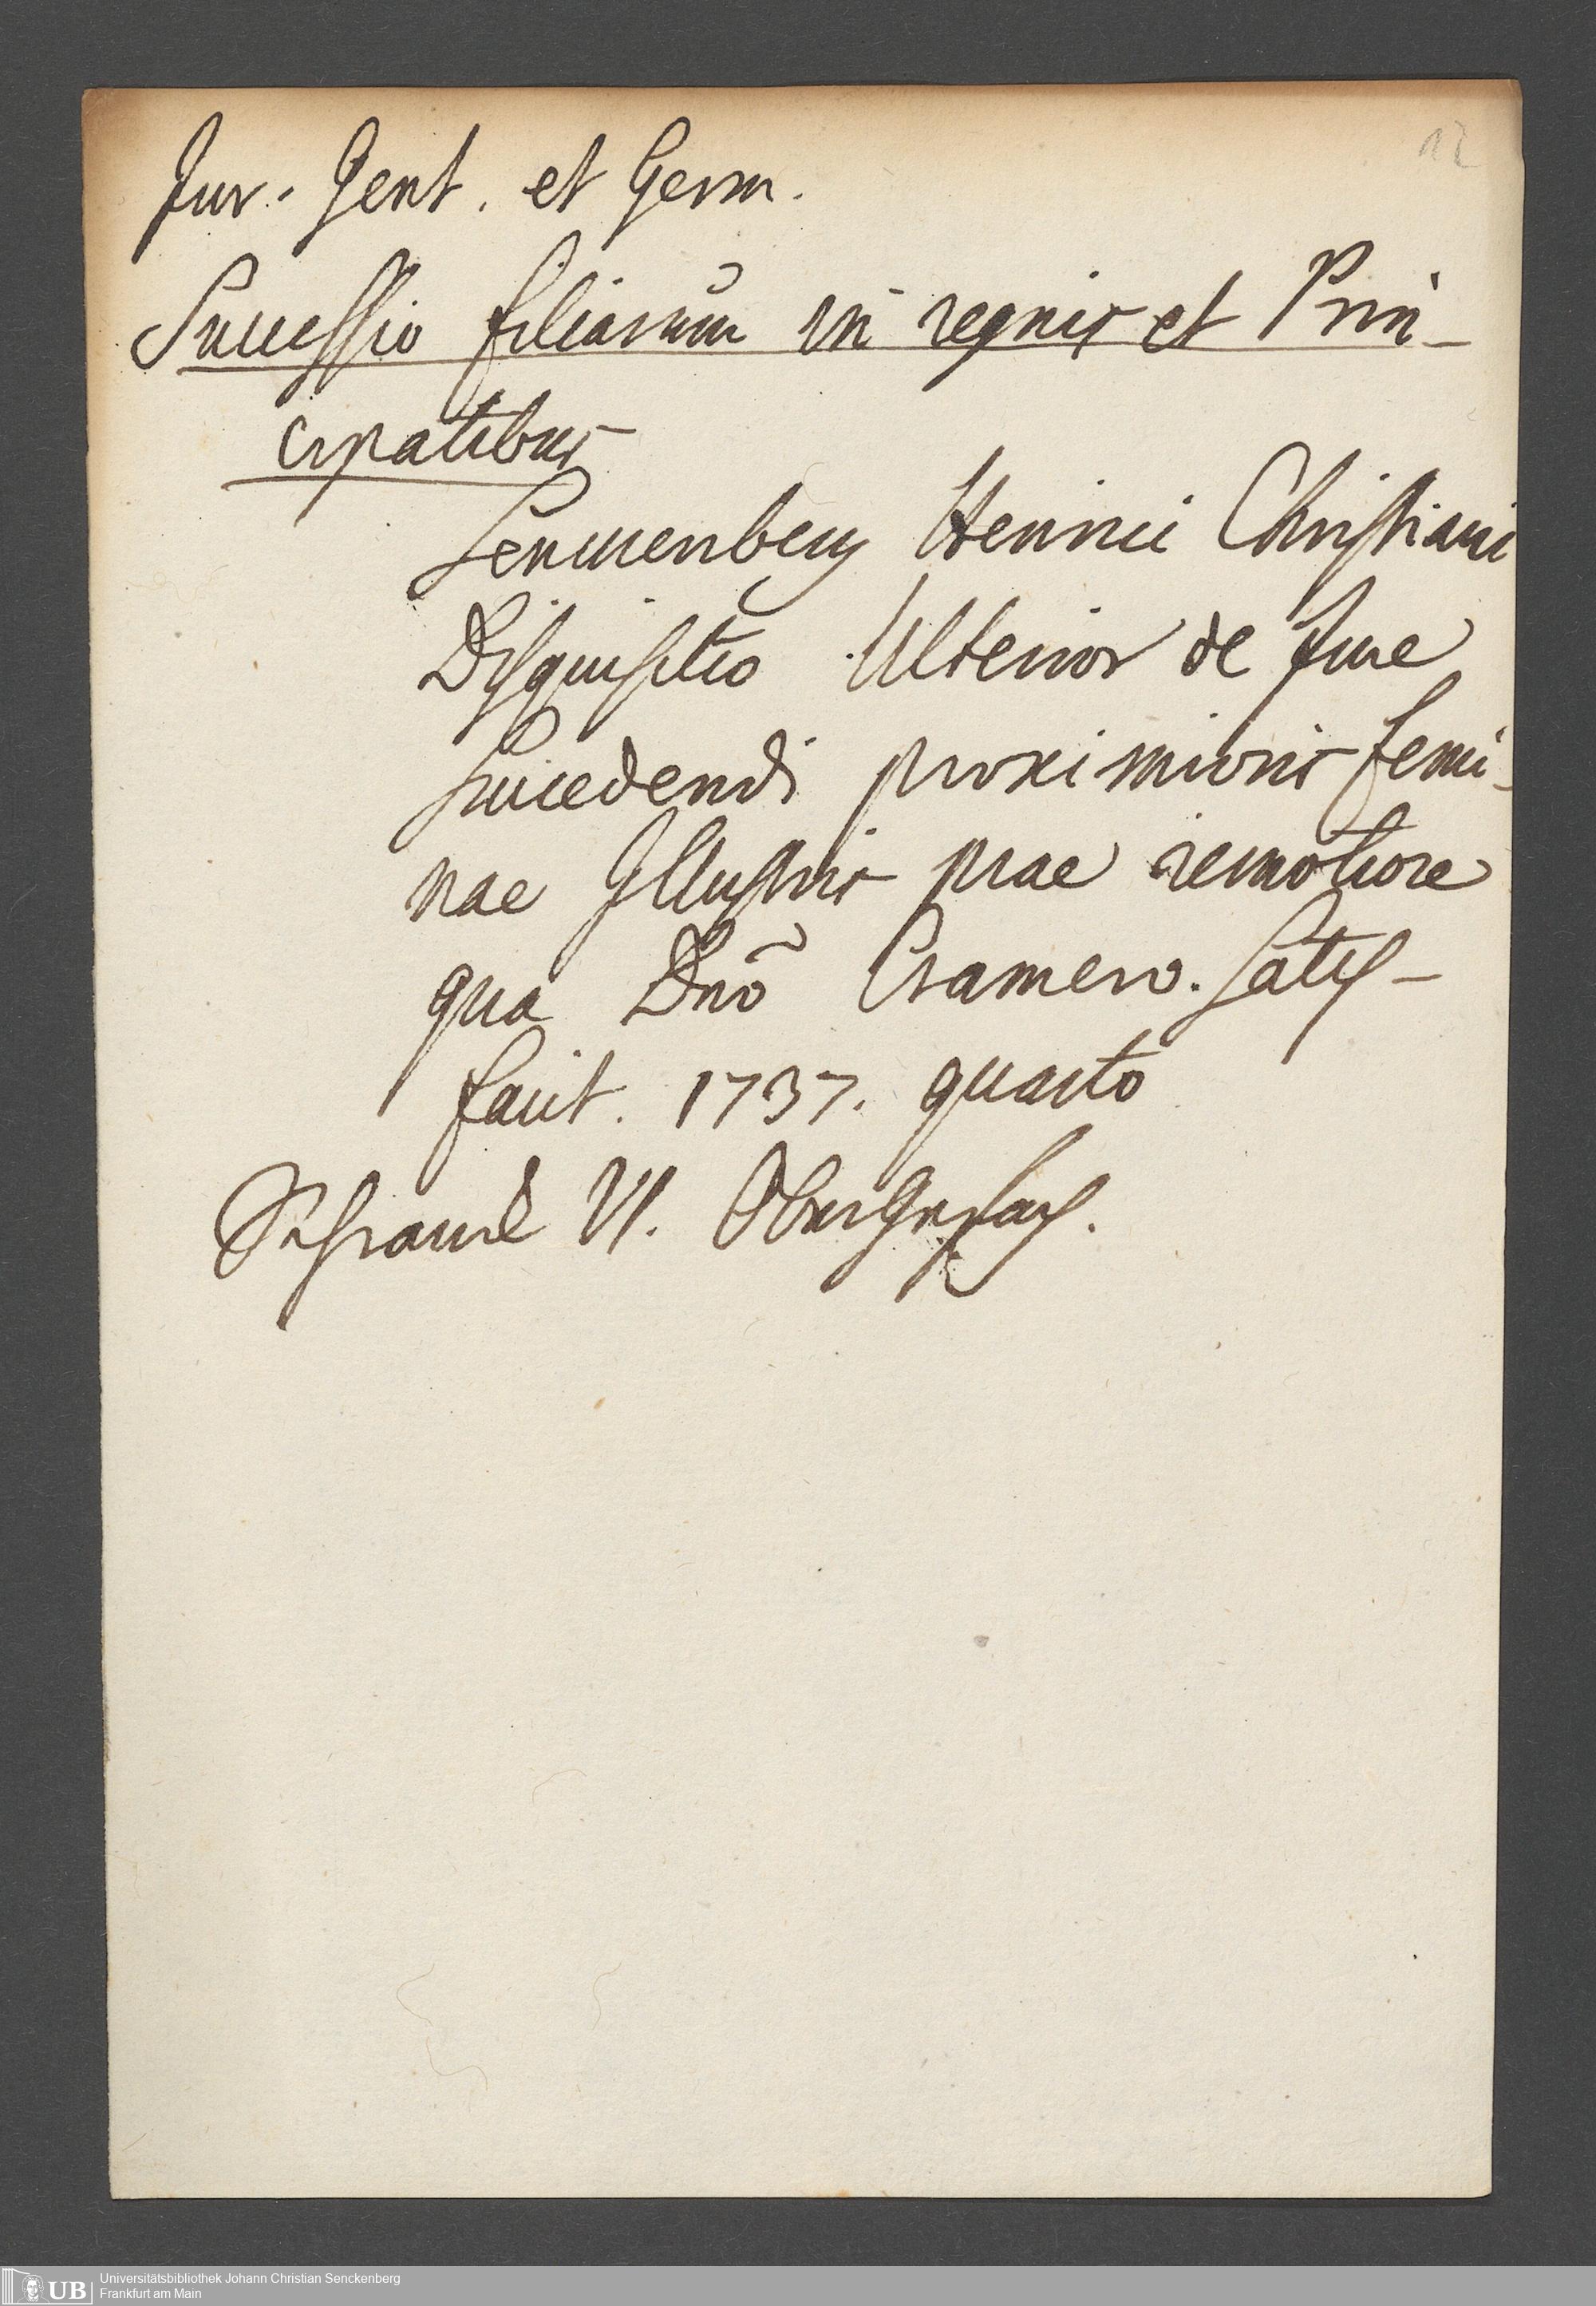 12
Jur. Gent. et Germ.
Successio filiarum in regnis et Prin-
cipatibus
Senckenberg Henrici Christiani
Disquisitio Ulterior de Jure
succedendi proximioris femi-
nae Illustris prae remotiore
qua Dnō Cramero. satis-
facit. 1737. quarto
Schranck VI. Obergefach.
Universitätsbibliothek Johann Christian Senckenberg
UB Frankfurt am Main